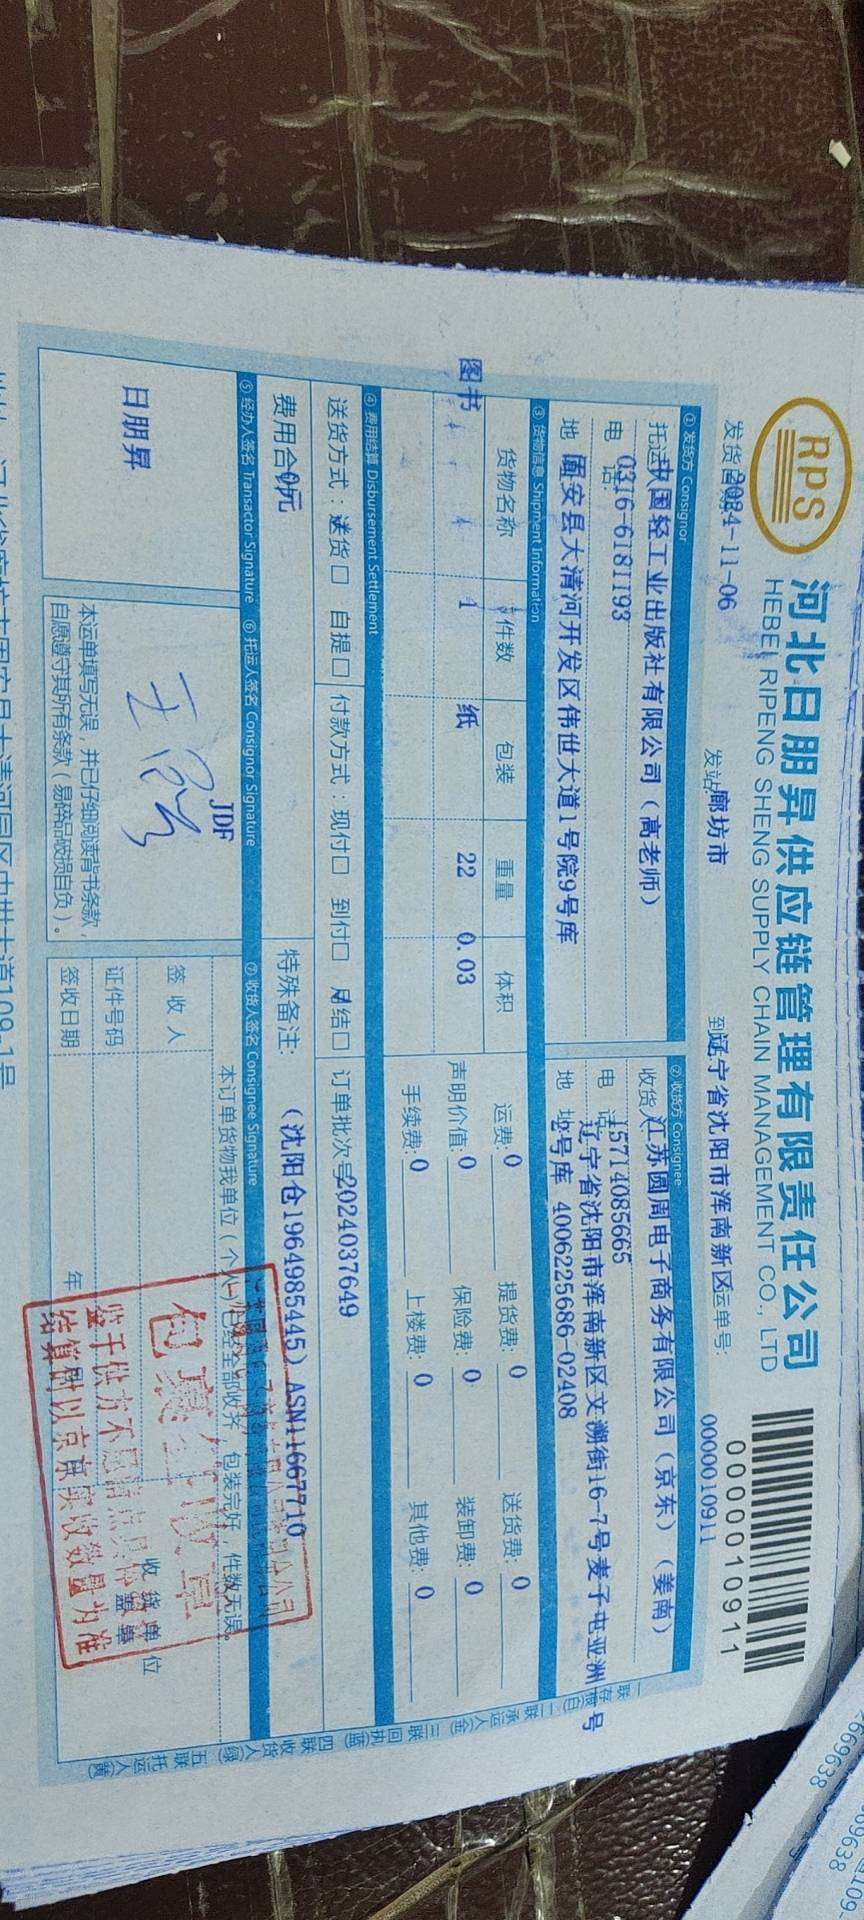 RPS
河北日朋昇供应链管理有限责任公司
HEBEI RIPENG SHENG SUPPLY CHAIN MANAGEMENT CO., LTD
0000010911
发货 2024-11-06 发站 廊坊市 到 辽宁省沈阳市浑南新区 运单号: 0000010911
① 发货方 Consignor
托运 中国轻工业出版社有限公司（高老师）
电话 0316-6181193
地 固安县大清河开发区伟世大道1号院9号库
② 收货方 Consignee
收货人 江苏圆周电子商务有限公司（京东）（姜南）
电话 15714085665
地址 辽宁省沈阳市浑南新区文溯街16-7号麦子屯亚洲 号
2号库 4006225686-02408
③ 货物信息 Shipment Information
货物名称 件数 包装 重量 体积
图书 1 纸 22 0.03
运费: 0 提货费: 0 送货费: 0
声明价值: 0 保险费: 0 装卸费: 0
手续费: 0 上楼费: 0 其他费: 0
④ 费用结算 Disbursement Settlement
送货方式：送货□ 自提□ 付款方式：现付□ 到付□ 月结□ 订单批次号 2024037649
费用合 0元 特殊备注: （沈阳仓1964985445）ASN11667710
⑤ 经办人签名 Transactor Signature
日朋昇
⑥ 托运人签名 Consignor Signature
JDF
本运单填写无误，并已仔细阅读背书条款，
自愿遵守其所有条款（易碎品破损自负）。
⑦ 收货人签名 Consignee Signature
本订单货物我单位（个人）已经全部收齐，包装完好，件数无误。
签收人
证件号码
签收日期 年
收货单位
盖章
结算时以京东实收数量为准
一联存根(白) 二联承运人(金) 三联回执(蓝) 四联收货人(绿) 五联托运人(黄)
669638